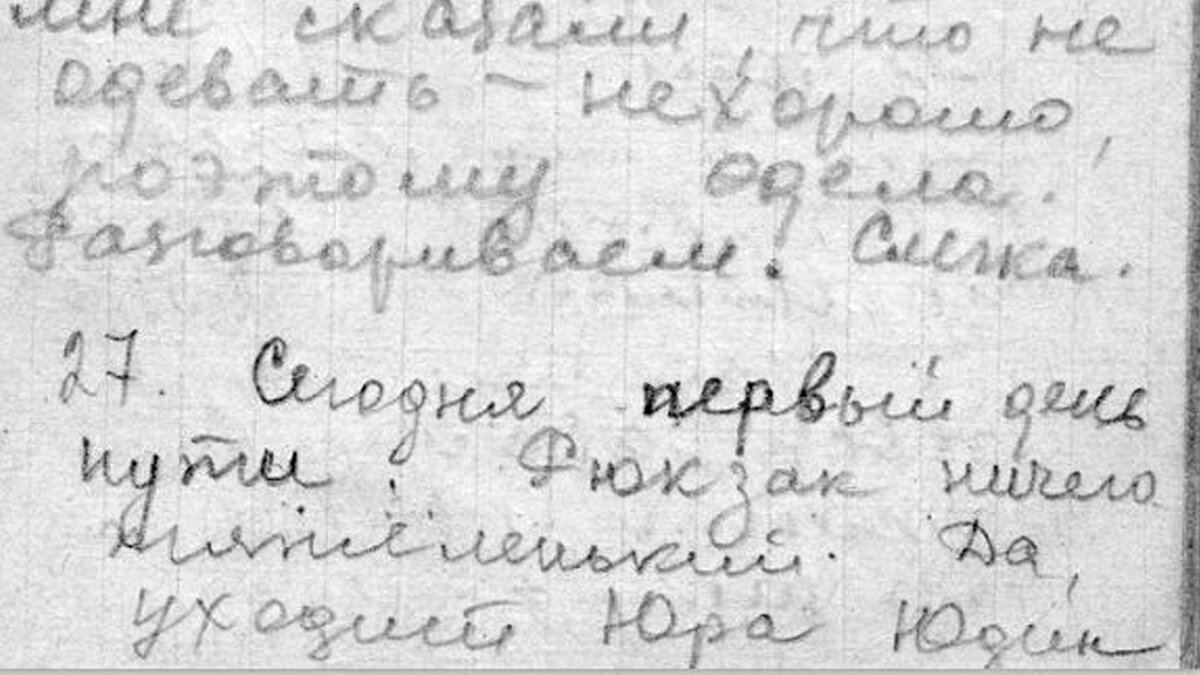 мне сказали, что не
одевать – нехорошо,
поэтому одела.
Разговариваем.
27. Сегодня первый день
пути. Рюкзак ничего
тяжёленький. Да,
уходит Юра Юдин